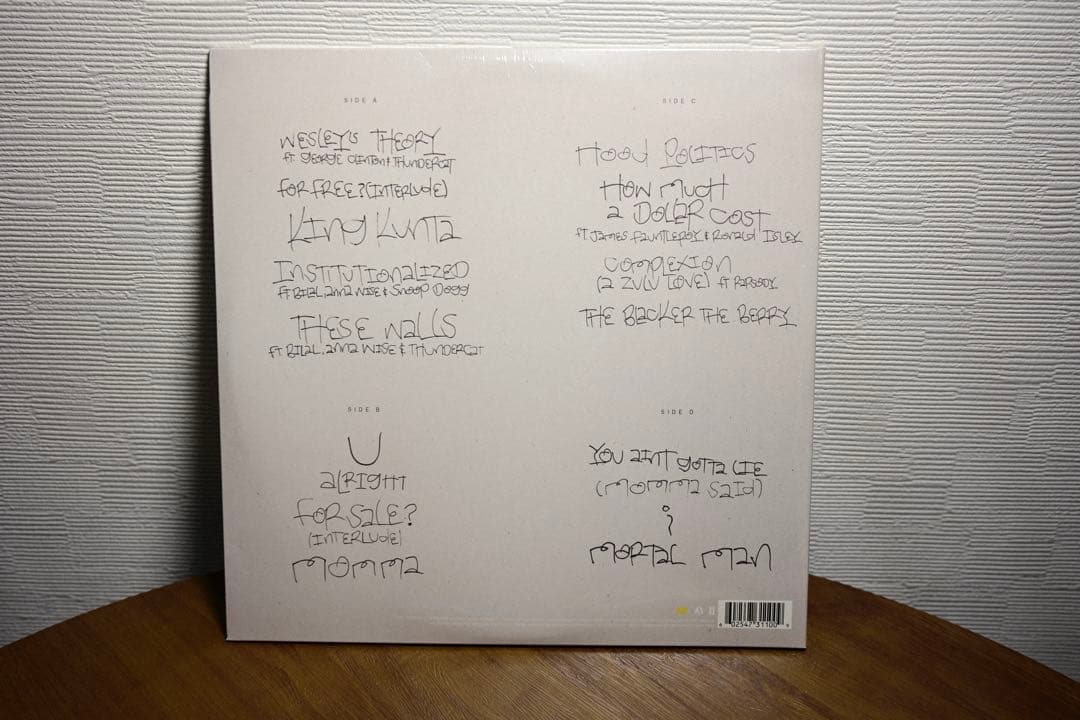 SIDE A
WESLEY's THEORY
ft. GEORGE CLINTON & THUNDERCAT
FOR FREE? (INTERLUDE)
King Kunta
INSTITUTIONALIZED
ft BILAL, anna WISE & Snoop Dogg
THESE WALLS
ft BILAL, anna WISE & THUNDERCAT
SIDE B
U
aLRIGHT
FOR SALE?
(INTERLUDE)
MOMMA
SIDE C
HOOD POLITICS
HOW MUCH
a DOLLAR COST
ft JAMES FAUNTLEROY & RONALD ISLEY
COMPLEXION
(a ZULU LOVE) ft RAPSODY
THE BLACKER THE BERRY
SIDE D
YOU AINT GOTTA LIE
(MOMMA SAID)
i
MORTAL MAN
6 02547 31100 9